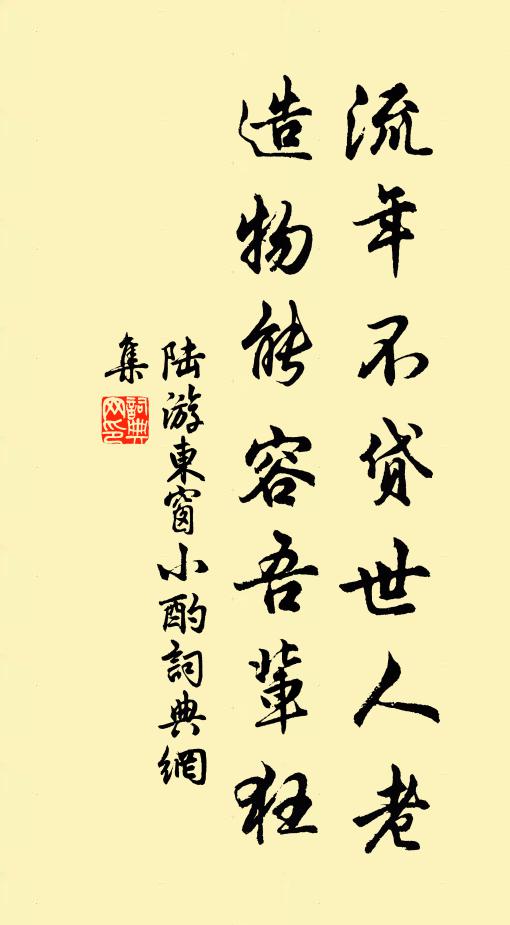 流年不貸世人老
造物能容吾輩狂
陆游東窗小酌詞典網
集
詞典
网印